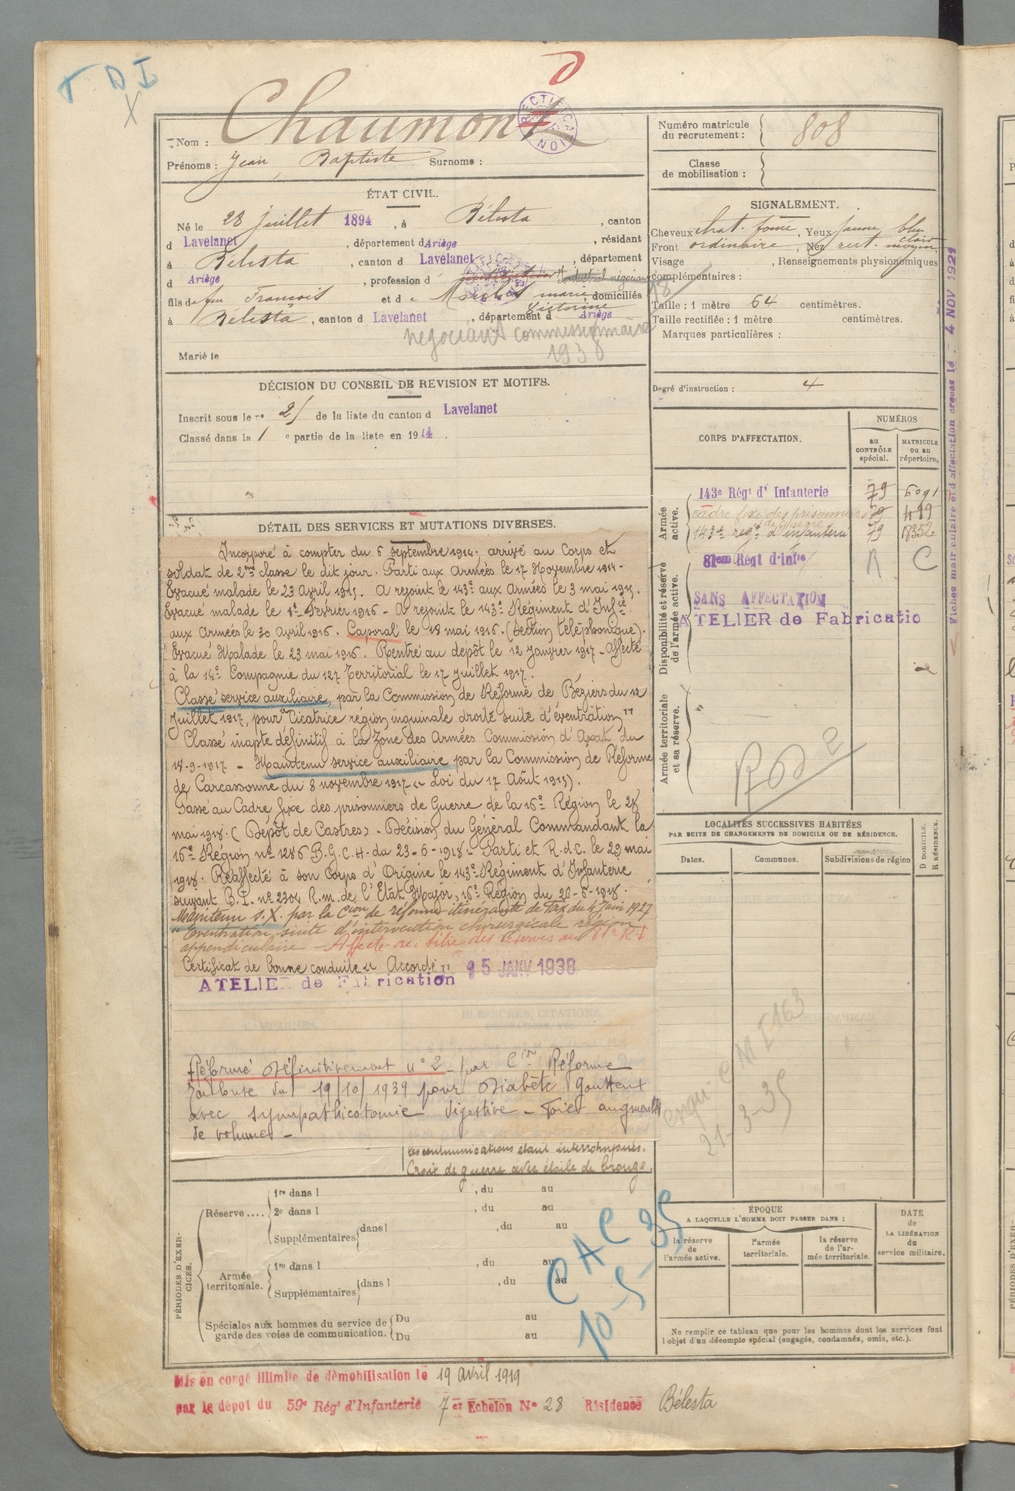 T D I
X
Nom : Chaumont
d
RECTIFICATION
Prénoms : Jean Baptiste Surnoms :
Numéro matricule du recrutement : 808
Classe de mobilisation :
ÉTAT CIVIL.
Né le 28 juillet 1894, à Bélesta, canton
d Lavelanet, département d Ariège, résidant
à Bélesta, canton d Lavelanet, département
d Ariège, profession d industriel négociant
fils de feu François et de marie Victorine, domiciliés
à Bélesta, canton d Lavelanet, département d Ariège
négociant commissionnaire
1938
Marié le
SIGNALEMENT.
Cheveux chat. foncé, Yeux jaune bleu clair
Front ordinaire, Nez rect. moyen
Visage , Renseignements physionomiques
complémentaires :
Taille : 1 mètre 64 centimètres.
Taille rectifiée : 1 mètre centimètres.
Marques particulières :
Degré d'instruction : 4
DÉCISION DU CONSEIL DE REVISION ET MOTIFS.
Inscrit sous le n° 21 de la liste du canton d Lavelanet
Classé dans la 1 e partie de la liste en 1914.
CORPS D'AFFECTATION.
NUMÉROS
au CONTRÔLE spécial.
MATRICULE ou au répertoire.
Armée active.
143e Régt d'Infanterie 79 6091
cadre fixe des prisonniers de guerre 79 499
143e regt d'infanterie 79 18352
Disponibilité et réserve de l'armée active.
81em Régt d'infie R C
SANS AFFECTATION
ATELIER de Fabricatio
Armée territoriale et sa réserve.
Rd 2
Fiches matriculaire et d'affectation créées le 4 NOV 1921
DÉTAIL DES SERVICES ET MUTATIONS DIVERSES.
Incorporé à compter du 6 septembre 1914, arrivé au Corps et
soldat de 2me classe le dit jour. Parti aux Armées le 17 Novembre 1914.
Evacué malade le 23 Avril 1915. A rejoint le 143e aux Armées le 3 mai 1915.
Evacué malade le 1er Février 1916 - A rejoint le 143e Régiment d'Infie
aux Armées le 30 Avril 1916. Caporal le 18 mai 1916. (Section téléphonique).
Evacué Malade le 23 mai 1916. Rentré au dépôt le 12 Janvier 1917 - Affecté
à la 14e Compagnie du 127 Territorial le 17 juillet 1917.
Classé service auxiliaire, par la Commission de Réforme de Béziers du 12
juillet 1917, pour "Cicatrice région inguinale droite suite d'éventration"
Classé inapte définitif à la Zone des Armées Commission d'Axat du
18-9-1917 - Maintenu service auxiliaire par la Commission de Réforme
de Carcassonne du 8 novembre 1917 (Loi du 17 Août 1915).
Passé au Cadre fixe des prisonniers de Guerre de la 16e Région le 28
mai 1918. (Dépôt de Castres) - Décision du Général Commandant la
16e Région n° 1286 B.G.C.H. du 23-5-1918 - Parti et R.d.C. le 29 mai
1918. Réaffecté à son Corps d'Origine le 143e Régiment d'Infanterie
suivant B.I. n° 2304 R.m. de l'État Major, 16e Région du 28-6-1918.
Maintenu S.X. par la Cion de réforme itinérante de Foix du 4 Juin 1927
"Eventration suite d'intervention chirurgicale région
appendiculaire - Affecté de ... des réserves au 81e R.I
Certificat de bonne conduite "Accordé"
25 JANV 1938
ATELIER de Fabrication
Réformé Définitivement n° 2 - par Cion Réforme
Toulouse du 19/10/1939 pour Diabète goutteux
avec sympathicotomie digestive - Foie augmenté
de volume -
les communications étant interrompues.
Croix de guerre avec étoile de bronze
LOCALITÉS SUCCESSIVES HABITÉES
PAR SUITE DE CHANGEMENTS DE DOMICILE OU DE RÉSIDENCE.
Dates.
Communes.
Subdivisions de région
D DOMICILE.
R RÉSIDENCE.
CM I 163
21-3-35
PÉRIODES D'EXERCICES.
Réserve ....
1re dans l , du au
2e dans l , du au
Supplémentaires dans l , du au
Armée territoriale.
1re dans l , du au
Supplémentaires dans l , du au
Spéciales aux hommes du service de garde des voies de communication.
Du au
Du au
CAC 35
10-5
ÉPOQUE
A LAQUELLE L'HOMME DOIT PASSER DANS :
la réserve de l'armée active.
l'armée territoriale.
la réserve de l'armée territoriale.
DATE de LA LIBÉRATION du service militaire.
Ne remplir ce tableau que pour les hommes dont les services font
l'objet d'un décompte spécial (engagés, condamnés, omis, etc.).
Mis en congé illimité de démobilisation le 19 avril 1919
par le dépôt du 59e Régt d'Infanterie 7 er Echelon N° 28 Résidence Bélesta